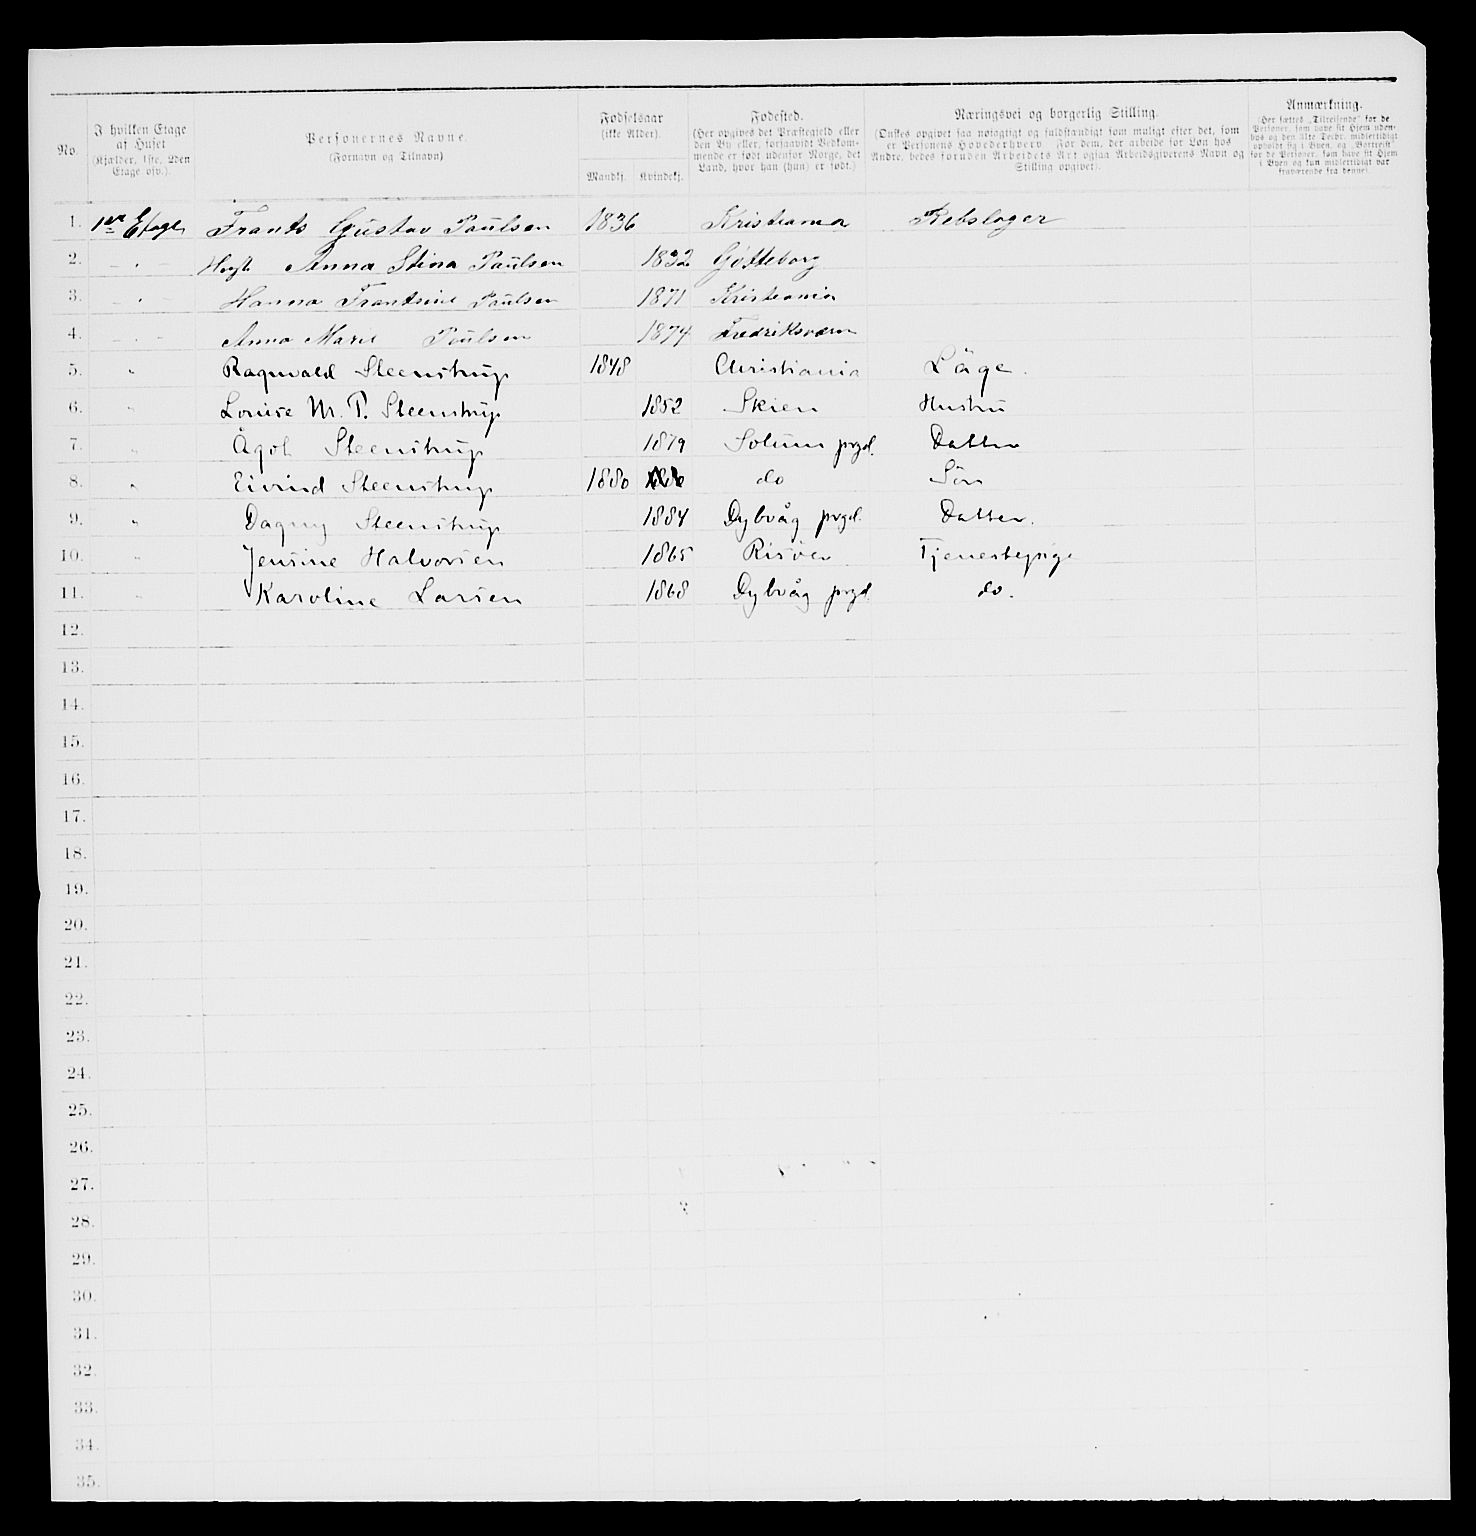 No. I hvilken Etage af Huset (Kjælder, 1ste, 2den Etage osv.). Personernes Navne. (Fornavn og Tilnavn) Fødselsaar (ikke Alder). Mandkj. Kvindekj. Fødested. (Her opgives det Præstegjeld eller den By eller, forsaavidt Vedkommende er født udenfor Norge, det Land, hvor han (hun) er født.) Næringsvei og borgerlig Stilling. (Ønskes opgivet saa nøiagtigt og fuldstændigt som muligt efter det, som er Personens Hovederhverv. For dem, der arbeide for Løn hos Andre, bedes foruden Arbeidets Art ogsaa Arbeidsgiverens Navn og Stilling opgivet). Anmærkning. (Her sættes „Tilreisende" for de Personer, som have sit Hjem udenbys og den 31te Decbr. midlertidigt opholdt sig i Byen, og „Bortreist" for de Personer, som have sit Hjem i Byen og kun midlertidigt var fraværende fra denne).
1. 1ste Etage Frants Gustav Paulsen 1836 Kristiania Rebslager
2. - " - Anna Stina Paulsen 1832 Gøtteborg
3. - " - Hanna Frantsine Paulsen 1871 Kristiania
4. - " - Anna Marie Paulsen 1874 Fredriksværn
5. " Ragnvald Steenstrup 1848 Christiania Läge.
6. " Louise M. P. Steenstrup 1852 Skien Hustru
7. " Ågot Steenstrup 1879 Solum prgd. Datter
8. " Eivind Steenstrup 1880 do Sön
9. " Dagny Steenstrup 1884 Dybvåg prgd. Datter.
10. " Jensine Halvorsen 1865 Risöer Tjenestepige
11. " Karoline Larsen 1868 Dybvåg prgd. do.
12.
13.
14.
15.
16.
17.
18.
19.
20.
21.
22.
23.
24.
25.
26.
27.
28.
29.
30.
31.
32.
33.
34.
35.